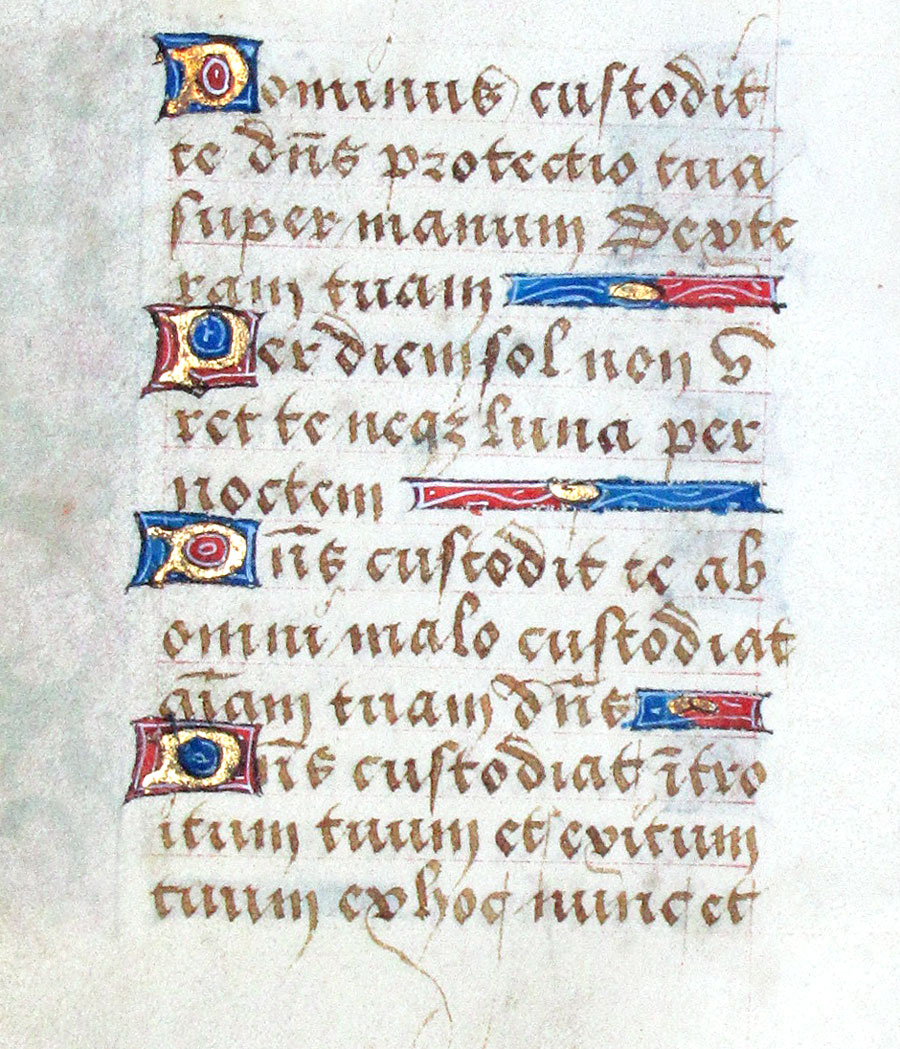 Dominus custodit
te dñs protectio tua
super manum Dexte
ram tuam
Per diem sol non v
ret te neqꝫ luna per
noctem
Dñs custodit te ab
omni malo custodiat
aīam tuam dñs
Dñs custodiat ītro
itum tuum et exitum
tuum ex hoc nunc et